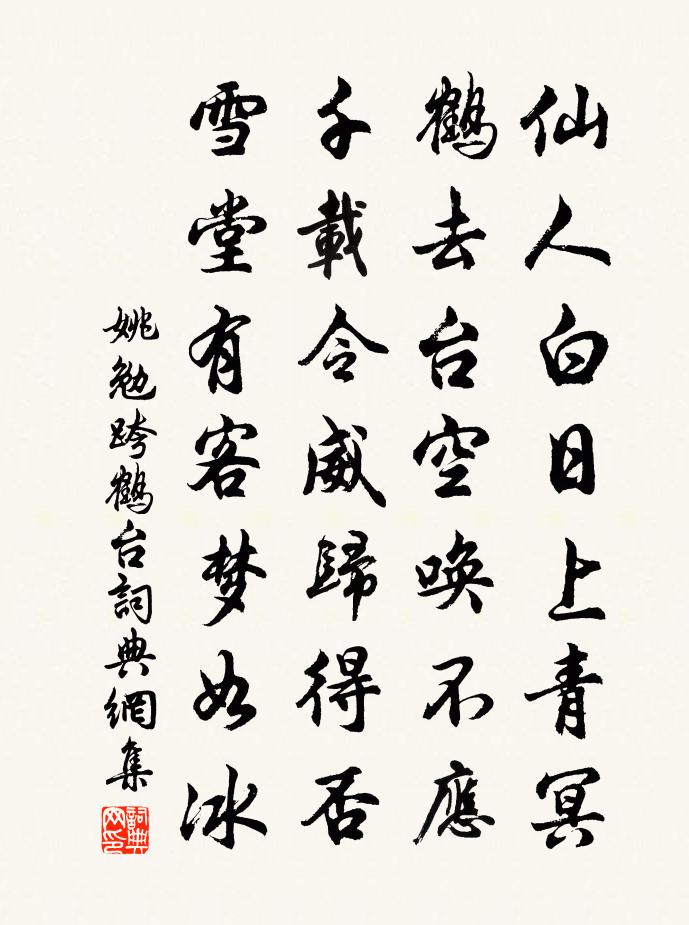 仙人白日上青冥
鶴去台空唤不應
千載令威歸得否
雪堂有客梦如冰
姚勉跨鶴台詞典網集
詞典网印